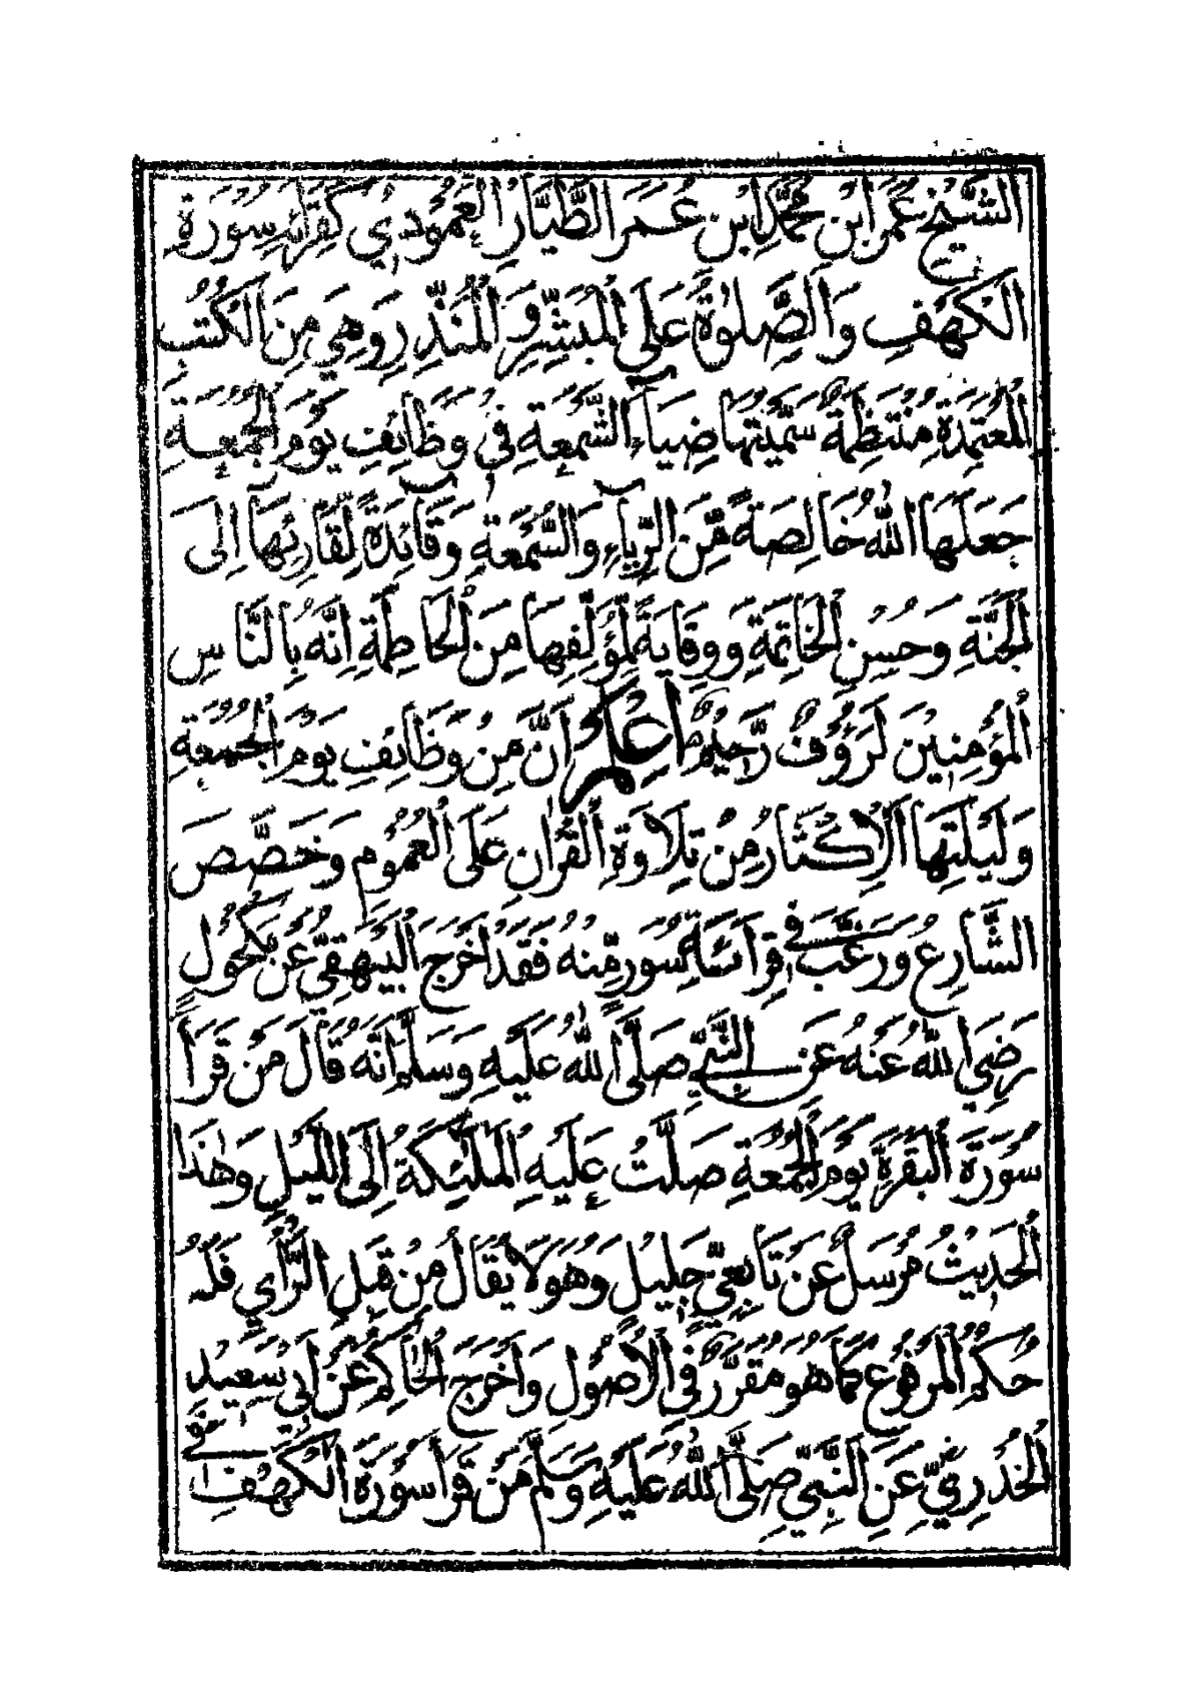 الشَّيْخِ عُمَرَ ابْنِ مُحَمَّدِ ابْنِ عُمَرَ الطَّيَّارِ الْعَمُوْدِيْ كَقِرَائَةِ سُوْرَةِ
الْكَهْفِ وَالصَّلٰوةُ عَلَى الْمُبَشِّرِ وَالْمُنَذِّرِ وَهِيَ مِنَ الْكُتُبِ
الْمُعْتَمَدَةِ مُنْتَظِمَةٌ سَمَّيْتُهَا ضِيَاءَ الشَّمْعَةِ فِيْ وَظَائِفِ يَوْمِ الْجُمُعَةِ
جَعَلَهَا اللّٰهُ خَالِصَةً مِّنَ الرِّيَاءِ وَالسُّمْعَةِ وَقَائِدَةً لِقَارِئِهَا اِلَى
الْجَنَّةِ وَحُسْنِ الْخَاتِمَةِ وَوِقَايَةً لِمُؤَلِّفِهَا مِنَ الْحَاطِمَةِ اِنَّهُ بِالنَّاسِ
الْمُؤْمِنِيْنَ لَرَؤُوْفٌ رَّحِيْمٌ اِعْلَمْ اَنَّ مِنْ وَظَائِفِ يَوْمِ الْجُمُعَةِ
وَلَيْلَتِهَا اَلْاِكْثَارُ مِنْ تِلَاوَةِ الْقُرْاٰنِ عَلَى الْعُمُوْمِ وَخَصَّصَ
الشَّارِعُ وَرَغَّبَ فِي قِرَائَةِ سُوَرٍ مِّنْهُ فَقَدْ اَخْرَجَ الْبَيْهَقِيُّ عَنْ مَكْحُوْلٍ
رَضِيَ اللّٰهُ عَنْهُ عَنِ النَّبِيِّ صَلَّى اللّٰهُ عَلَيْهِ وَسَلَّمَ اَنَّهُ قَالَ مَنْ قَرَأَ
سُوْرَةَ الْبَقَرَةِ يَوْمَ الْجُمُعَةِ صَلَّتْ عَلَيْهِ الْمَلٰئِكَةُ اِلَى اللَّيْلِ وَهٰذَا
الْحَدِيْثُ مُرْسَلٌ عَنْ تَابِعِيٍّ جَلِيْلٍ وَهُوَ لَا يُقَالُ مِنْ قِبَلِ الرَّأْيِ فَلَهُ
حُكْمُ الْمَرْفُوْعِ كَمَا هُوَ مُقَرَّرٌ فِي الْاُصُوْلِ وَاَخْرَجَ الْحَاكِمُ عَنْ اَبِيْ سَعِيْدٍ
الْخُدْرِيِّ عَنِ النَّبِيِّ صَلَّى اللّٰهُ عَلَيْهِ وَسَلَّمَ مَنْ قَرَأَ سُوْرَةَ الْكَهْفِ فِي